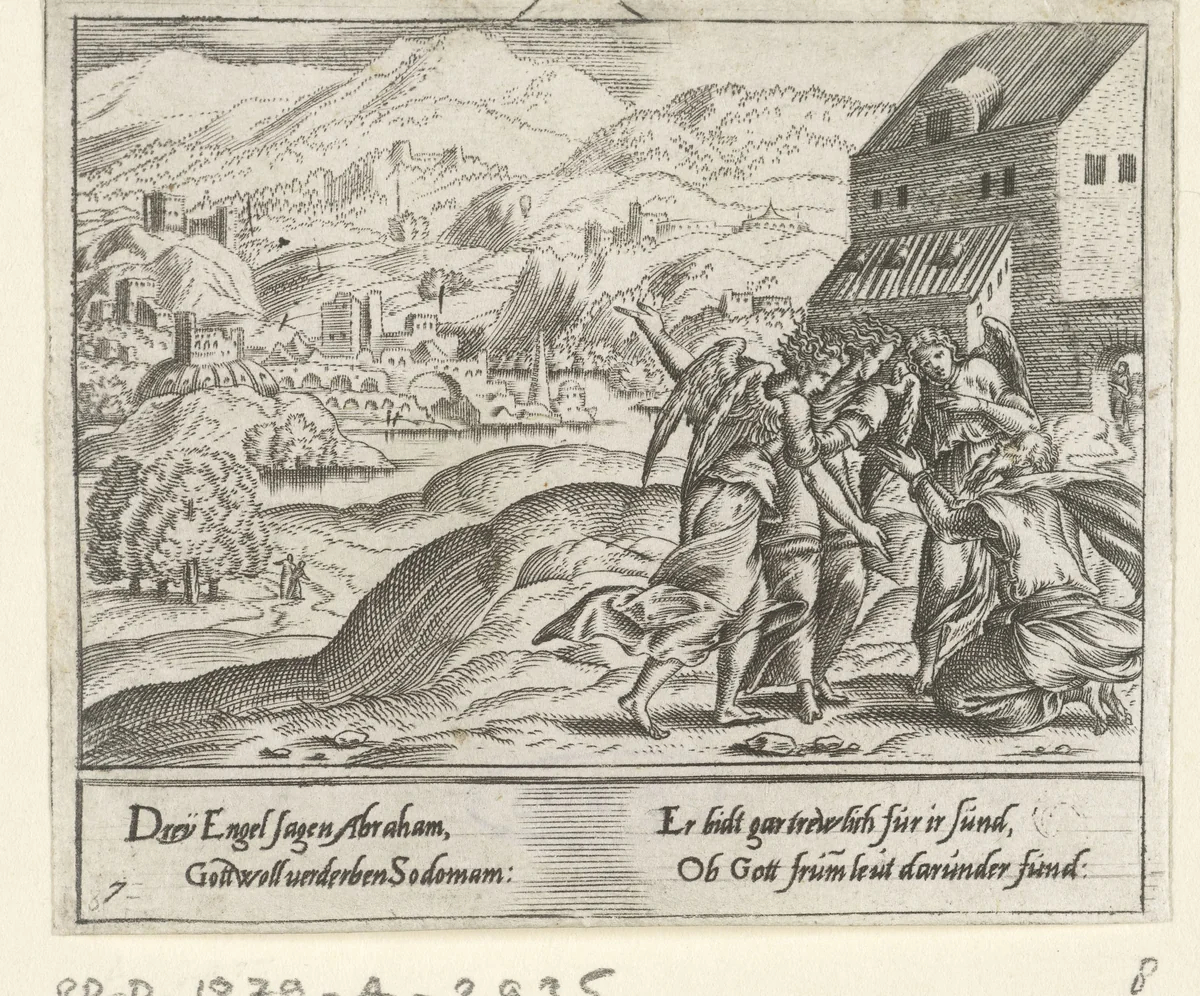 Dreÿ Engel sagen Abraham,
Gott woll verderben Sodomam:
Er bidt gar trewlich für ir sünd,
Ob Gott frum̃ leüt darunder fünd:
7
RP-P-1879-A-2935
8